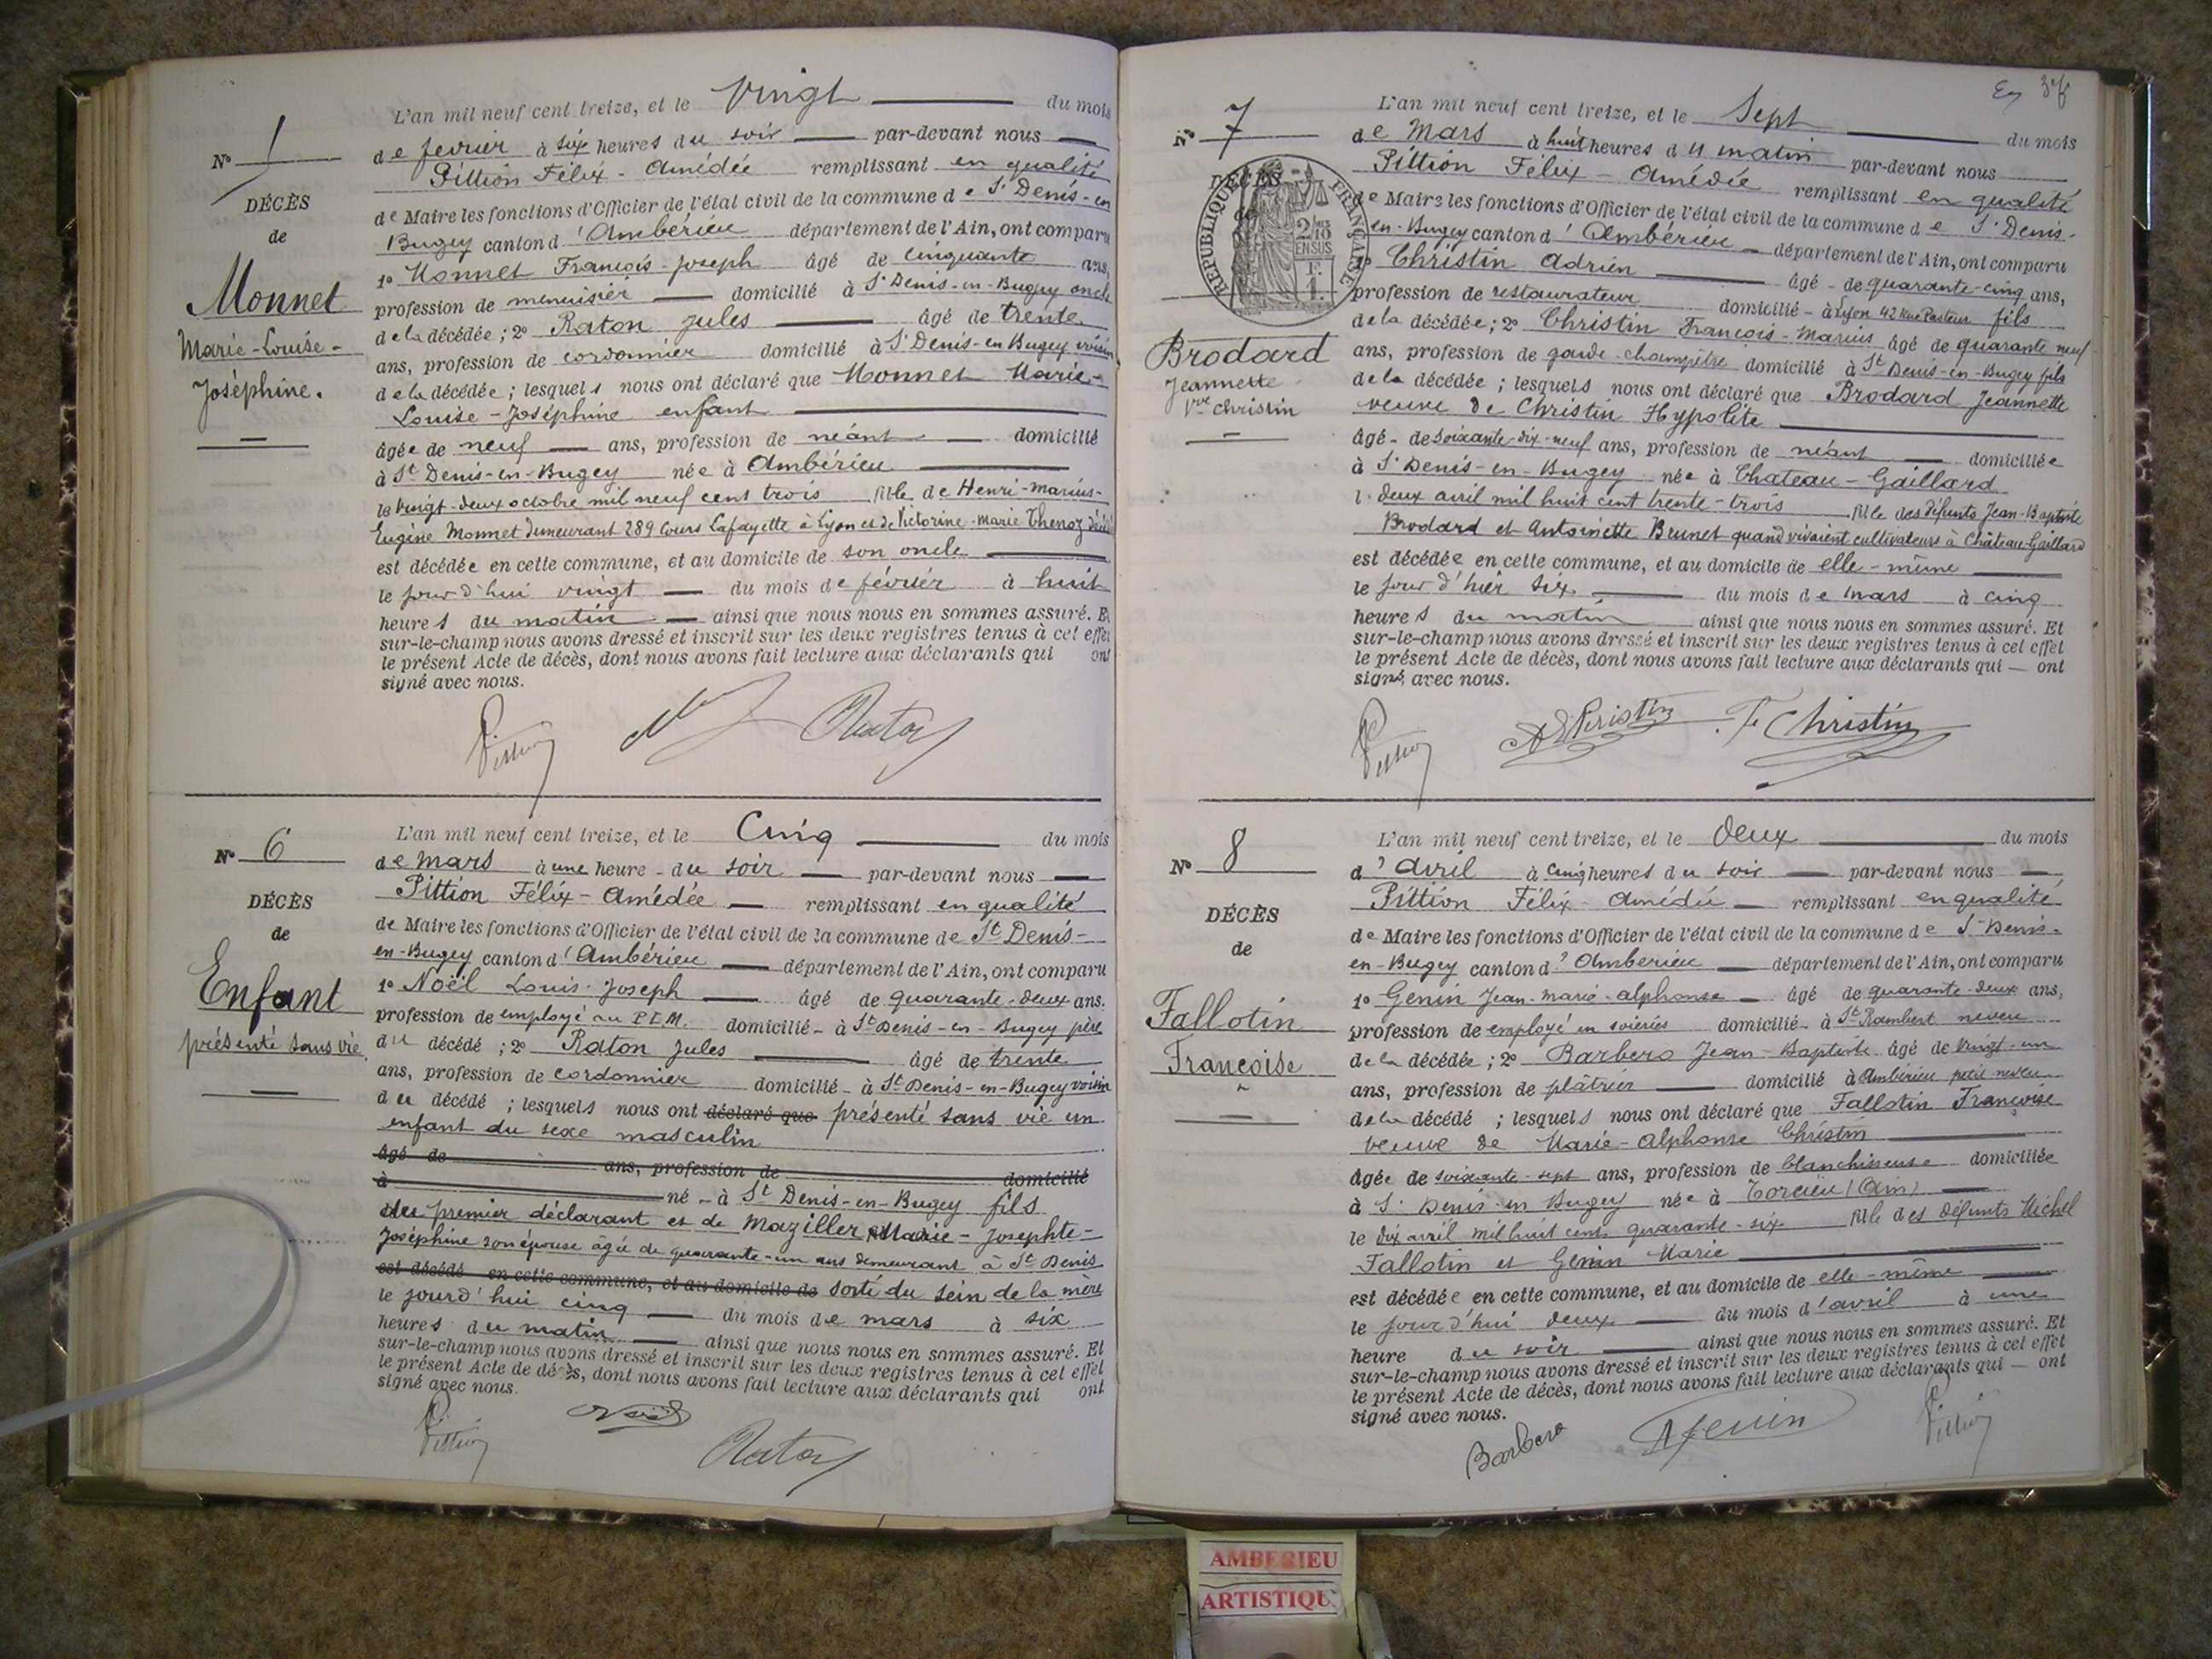 L'an mil neuf cent treize, et le Vingt du mois
de février à six heures du soir par-devant nous
Pittion Félix-Amédée remplissant en qualité
de Maire les fonctions d'Officier de l'état civil de la commune de St Denis-en
Bugey canton d'Ambérieu département de l'Ain, ont comparu
1° Monnet François-Joseph âgé de cinquante ans,
profession de menuisier domicilié à St Denis-en-Bugey oncle
de la décédée ; 2° Raton Jules âgé de trente
ans, profession de cordonnier domicilié à St Denis-en-Bugey voisin
de la décédée ; lesquels nous ont déclaré que Monnet Marie-
Louise-Joséphine enfant
âgée de neuf ans, profession de néant domicilié
à St Denis-en-Bugey née à Ambérieu
le vingt-deux octobre mil neuf cent trois fille de Henri-Marius-
Eugène Monnet demeurant 289 Cours Lafayette à Lyon et de Victorine-Marie Thenoz
est décédée en cette commune, et au domicile de son oncle
le jour d'hui vingt du mois de février à huit
heures du matin ainsi que nous nous en sommes assuré. Et
sur-le-champ nous avons dressé et inscrit sur les deux registres tenus à cet effet
le présent Acte de décès, dont nous avons fait lecture aux déclarants qui ont
signé avec nous.
N°
DÉCÈS
de
Monnet
Marie-Louise-
Joséphine.
Pittion Raton
L'an mil neuf cent treize, et le Cinq du mois
de mars à une heure du soir par-devant nous
Pittion Félix-Amédée remplissant en qualité
de Maire les fonctions d'Officier de l'état civil de la commune de St Denis-
en-Bugey canton d'Ambérieu département de l'Ain, ont comparu
1° Noël Louis-Joseph âgé de quarante-deux ans.
profession de employé au P.L.M. domicilié à St Denis-en-Bugey père
du décédé ; 2° Raton Jules âgé de trente
ans, profession de cordonnier domicilié à St Denis-en-Bugey voisin
du décédé ; lesquels nous ont déclaré que présenté sans vie un
enfant du sexe masculin
âgé de ans, profession de domicilié
à né à St Denis-en-Bugey fils
du premier déclarant et de Maziller Marie-Josephte-
Joséphine son épouse âgée de quarante-un ans demeurant à St Denis
est décédé en cette commune, et au domicile de sorti du sein de la mère
le jourd'hui cinq du mois de mars à six
heures du matin ainsi que nous nous en sommes assuré. Et
sur-le-champ nous avons dressé et inscrit sur les deux registres tenus à cet effet
le présent Acte de décès, dont nous avons fait lecture aux déclarants qui ont
signé avec nous.
N° 6
DÉCÈS
de
Enfant
présenté sans vie
Pittion Noël Raton
L'an mil neuf cent treize, et le Sept du mois
de Mars à huit heures du matin par-devant nous
Pittion Félix-Amédée remplissant en qualité
de Maire les fonctions d'Officier de l'état civil de la commune de St Denis-
en-Bugey canton d'Ambérieu département de l'Ain, ont comparu
Christin Adrien âgé de quarante-cinq ans,
profession de restaurateur domicilié à Lyon 42 Rue Pasteur fils
de la décédée ; 2° Christin François-Marius âgé de quarante neuf
ans, profession de garde-champêtre domicilié à St Denis-en-Bugey fils
de la décédée ; lesquels nous ont déclaré que Brodard Jeannette
veuve de Christin Hypolite
âgé de soixante-dix-neuf ans, profession de néant domiciliée
à St Denis-en-Bugey née à Chateau-Gaillard
l deux avril mil huit cent trente-trois fille des défunts Jean-Baptiste
Brodard et Antoinette Brunet quand vivaient cultivateurs à Château-Gaillard
est décédée en cette commune, et au domicile de elle-même
le jour d'hier six du mois de mars à cinq
heures du matin ainsi que nous nous en sommes assuré. Et
sur-le-champ nous avons dressé et inscrit sur les deux registres tenus à cet effet
le présent Acte de décès, dont nous avons fait lecture aux déclarants qui ont
signé avec nous.
N° 7
DÉCÈS
de
RÉPUBLIQUE FRANÇAISE
2/10
EN SUS
Brodard
Jeannette
Vve Christin
Pittion A Christin F Christin
L'an mil neuf cent treize, et le Deux du mois
d'Avril à cinq heures du soir par-devant nous
Pittion Félix-Amédée remplissant en qualité
de Maire les fonctions d'Officier de l'état civil de la commune de St Denis-
en-Bugey canton d'Ambérieu département de l'Ain, ont comparu
1° Genin Jean-Marie-Alphonse âgé de quarante-deux ans,
profession de employé en soieries domicilié à St Rambert neveu
de la décédée ; 2° Barbero Jean-Baptiste âgé de vingt-un
ans, profession de plâtrier domicilié à Ambérieu petit-neveu
de la décédé ; lesquels nous ont déclaré que Fallotin Françoise
veuve de Marie-Alphonse Christin
âgée de soixante-sept ans, profession de blanchisseuse domiciliée
à St Denis-en Bugey née à Torcieu (Ain)
le dix avril mil huit cent quarante-six fille des défunts Michel
Fallotin et Genin Marie
est décédée en cette commune, et au domicile de elle-même
le jour d'hui deux du mois d'avril à une
heure du soir ainsi que nous nous en sommes assuré. Et
sur-le-champ nous avons dressé et inscrit sur les deux registres tenus à cet effet
le présent Acte de décès, dont nous avons fait lecture aux déclarants qui ont
signé avec nous.
N° 8
DÉCÈS
de
Fallotin
Françoise
Barbero A Genin Pittion
AMBERIEU
ARTISTIQU